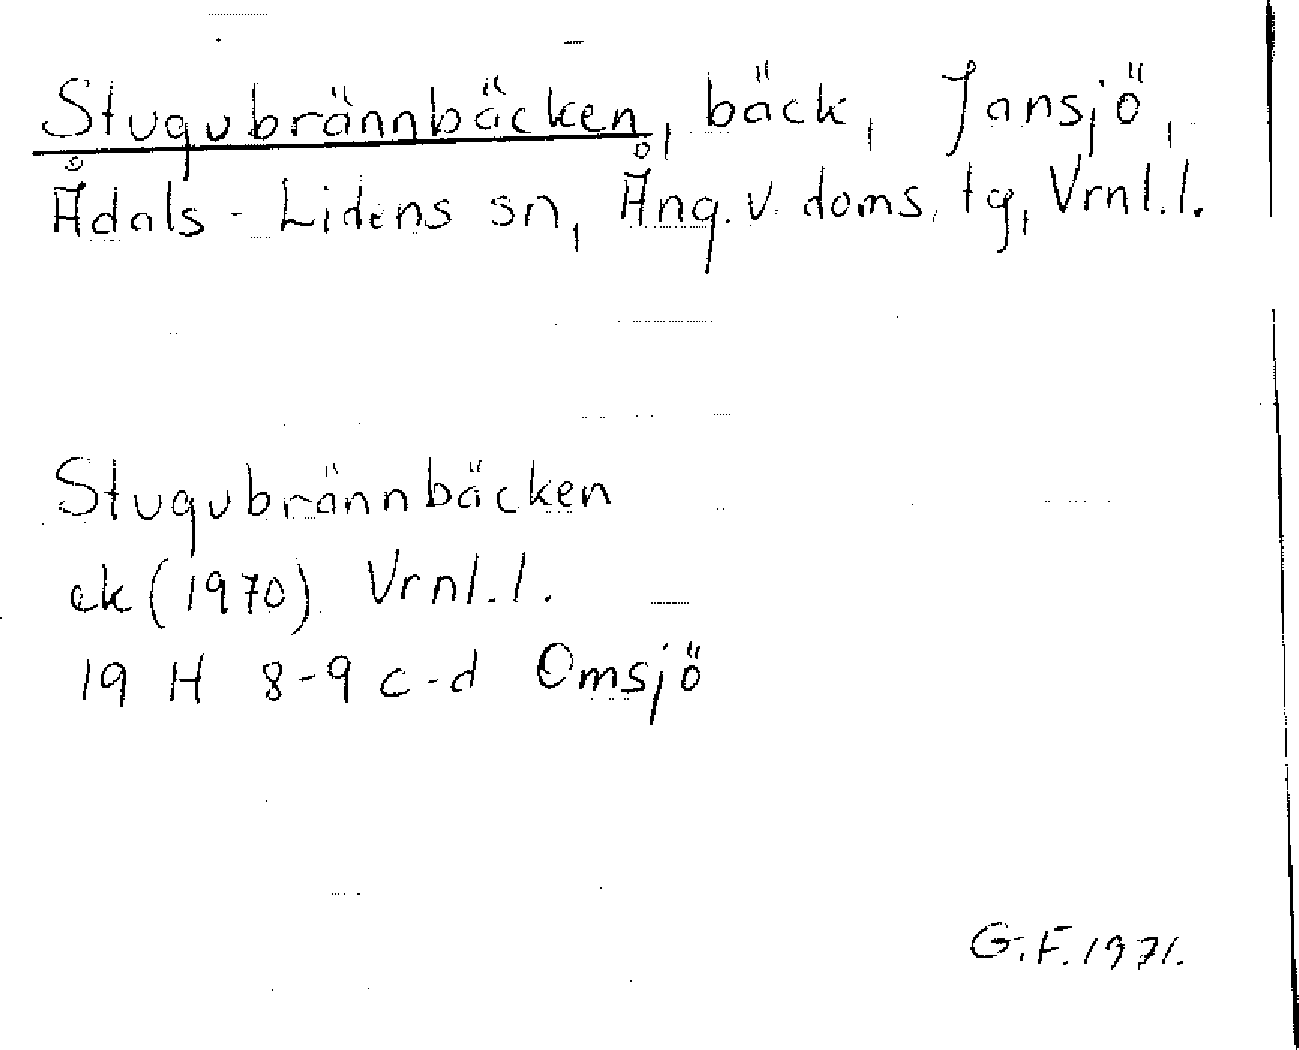 Stugubrännbäcken, bäck, Jansjö,
Ådals-Lidens sn, Ång. v. doms. tg, Vrnl. l.
Stugubrännbäcken
ek (1970) Vrnl. l.
19 H 8-9 c-d Omsjö
G. F. 1971.